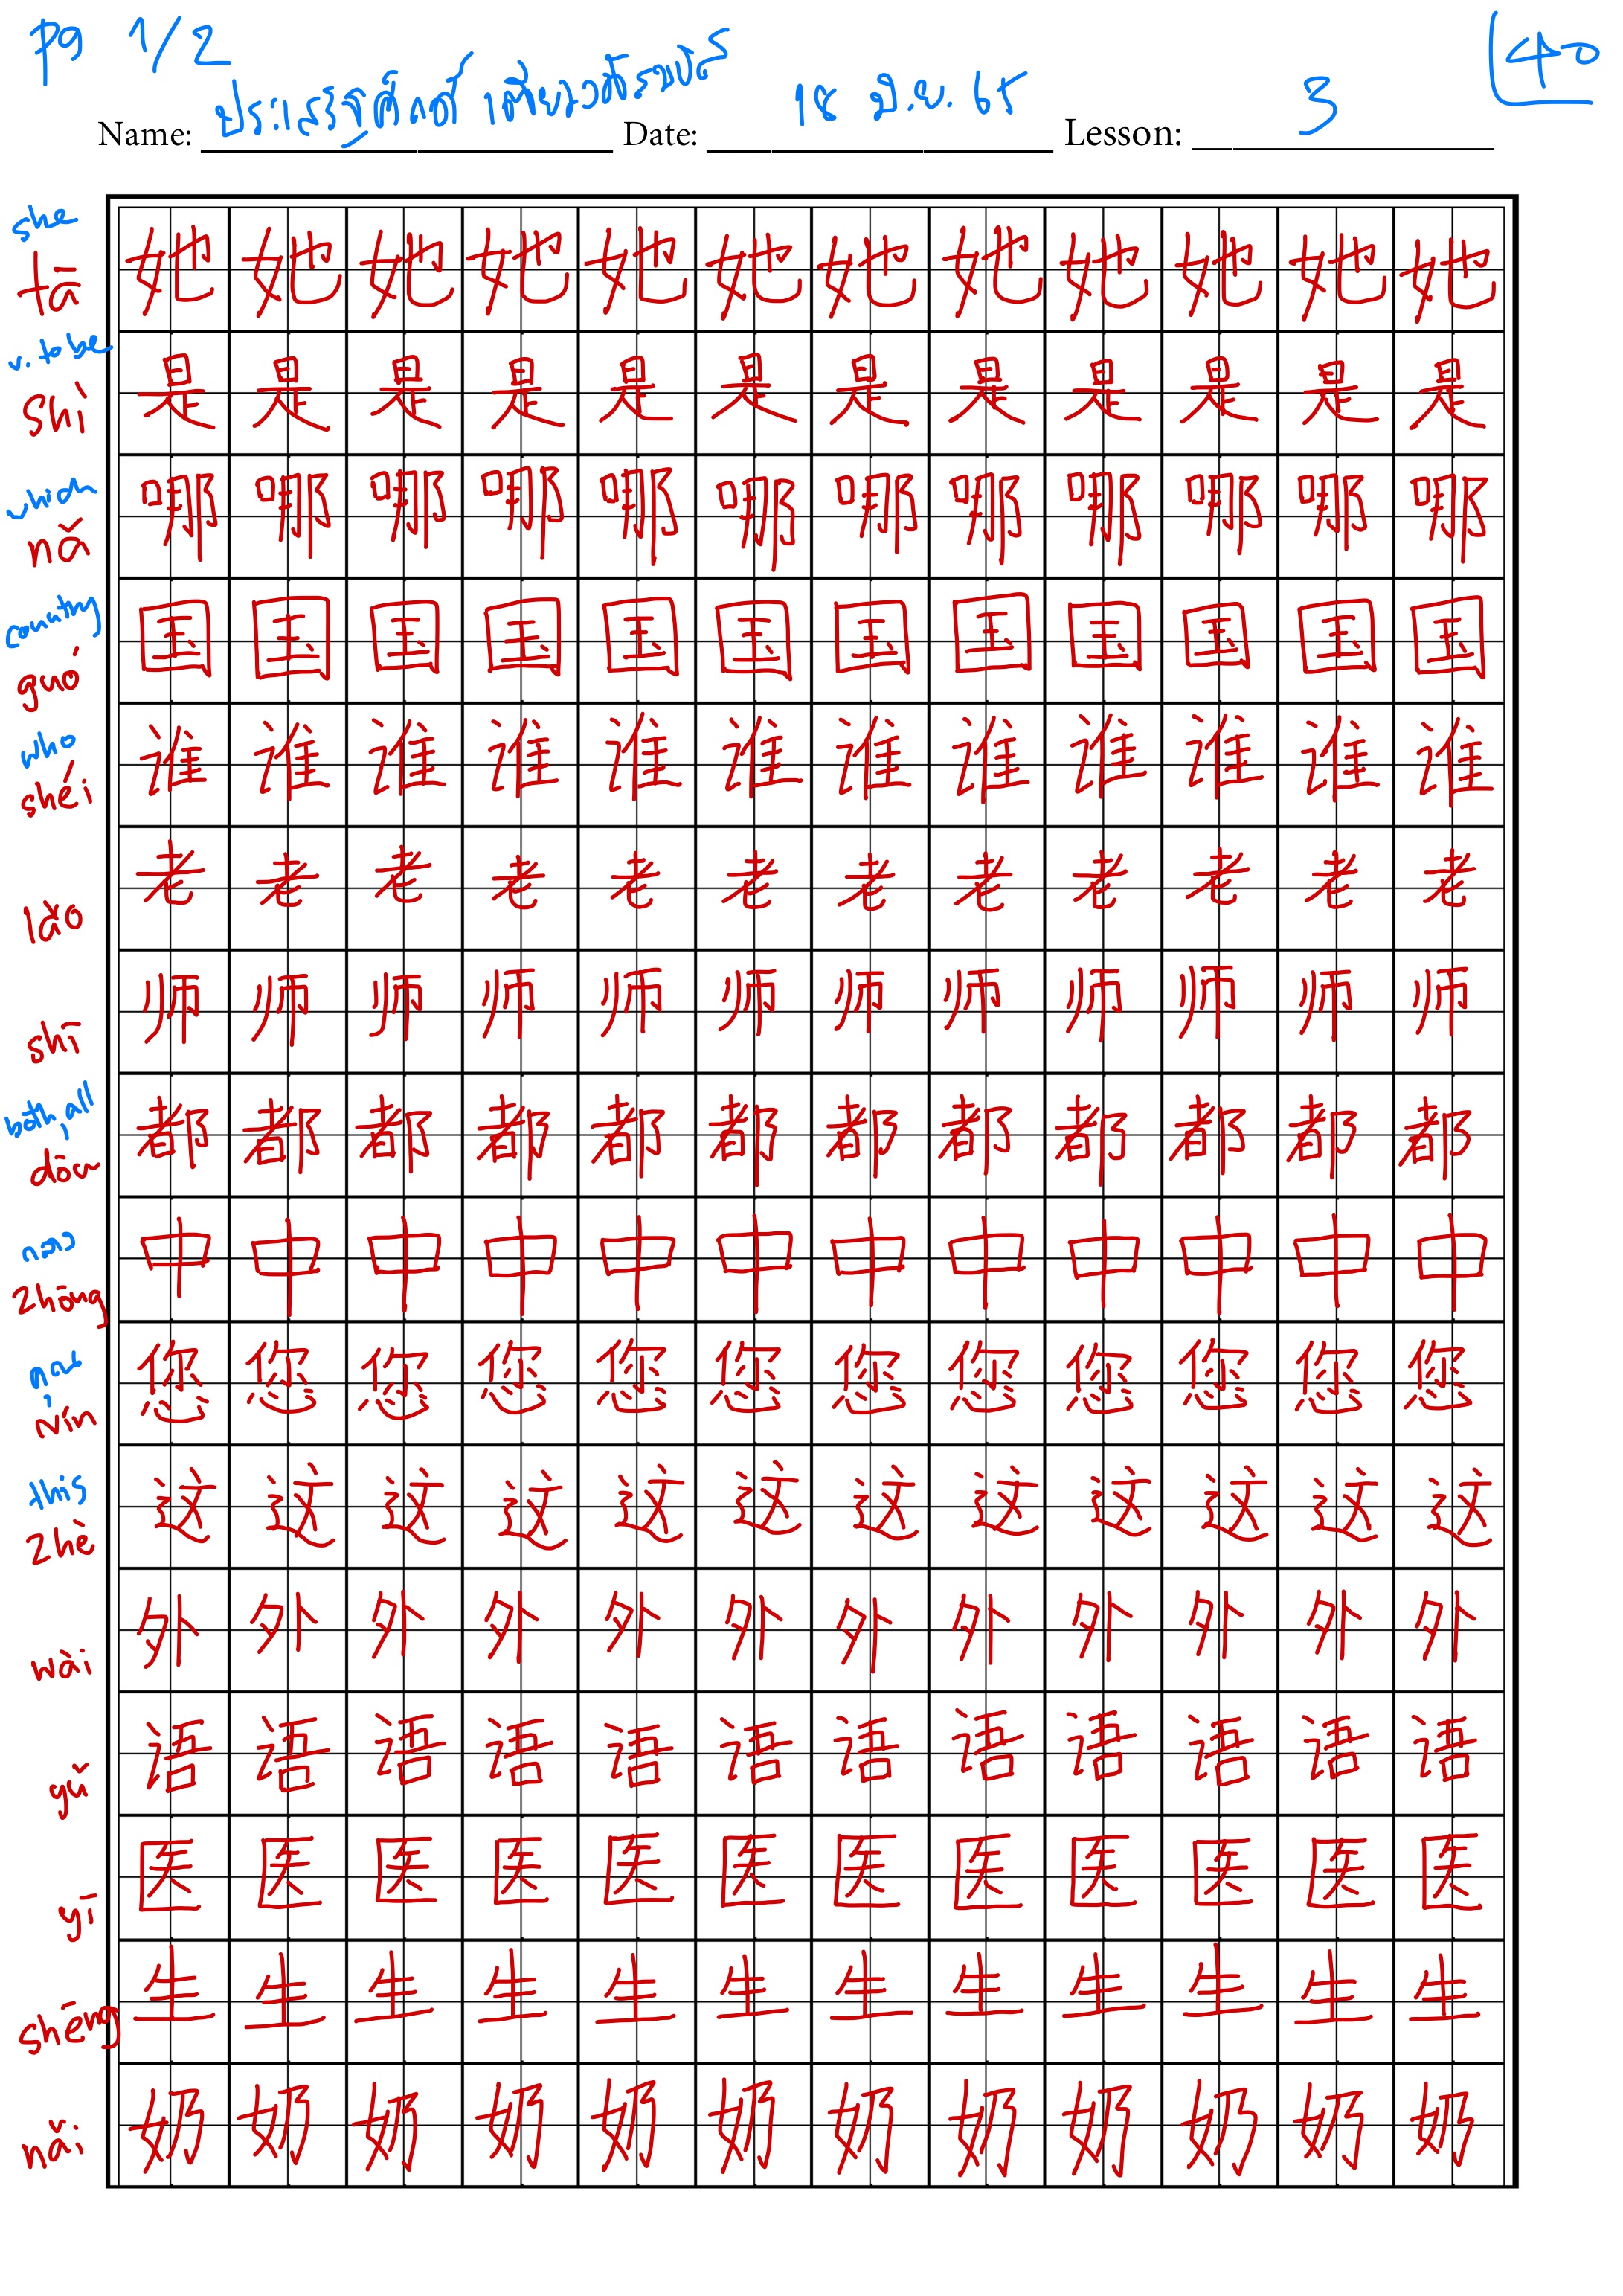 pg 1/2
40
Name: ประเสริฐศักดิ์ Date: 18 มิ.ย. 65 Lesson: 3
she
tā 她 她 她 她 她 她 她 她 她 她 她 她
v. to be
shì 是 是 是 是 是 是 是 是 是 是 是 是
which
nǎ 哪 哪 哪 哪 哪 哪 哪 哪 哪 哪 哪 哪
country
guó 国 国 国 国 国 国 国 国 国 国 国 国
who
shéi 谁 谁 谁 谁 谁 谁 谁 谁 谁 谁 谁 谁
lǎo 老 老 老 老 老 老 老 老 老 老 老 老
shī 师 师 师 师 师 师 师 师 师 师 师 师
both, all
dōu 都 都 都 都 都 都 都 都 都 都 都 都
กลาง
zhōng 中 中 中 中 中 中 中 中 中 中 中 中
คุณ
nín 您 您 您 您 您 您 您 您 您 您 您 您
this
zhè 这 这 这 这 这 这 这 这 这 这 这 这
wài 外 外 外 外 外 外 外 外 外 外 外 外
yǔ 语 语 语 语 语 语 语 语 语 语 语 语
yī 医 医 医 医 医 医 医 医 医 医 医 医
shēng 生 生 生 生 生 生 生 生 生 生 生 生
nǎi 奶 奶 奶 奶 奶 奶 奶 奶 奶 奶 奶 奶